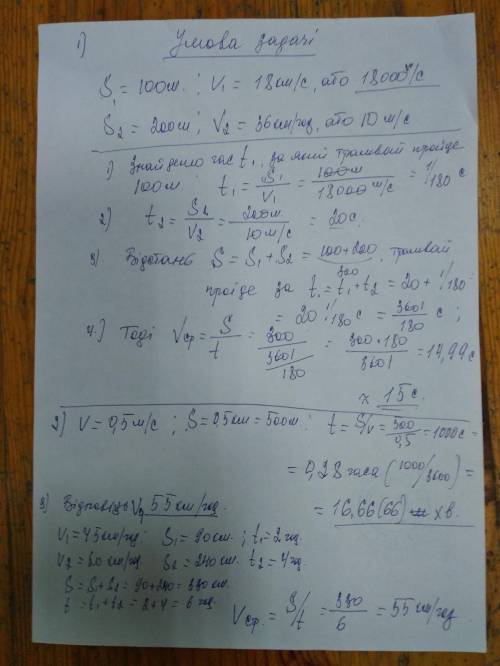 1) Умова задачі
S₁ = 100м. ; V₁ = 18км/с, або 18000м/с
S₂ = 200м ; V₂ = 36км/год, або 10 м/с
1) Знайдемо час t₁, за який трамвай пройде
100м. t₁ = S₁/V₁ = 100м/18000 м/с = 1/180 с
2) t₂ = S₂/V₂ = 200м/10 м/с = 20с.
3) Відстань S = S₁ + S₂ = 100+200, трамвай
300
пройде за t = t₁ + t₂ = 20 + 1/180
= 20 1/180 с = 3601/180 с ;
4.) Тоді Vср = S/t = 300/(3601/180) = 300*180/3601 = 14,99с
≈ 15с.
2) V = 0,5м/с ; S = 0,5км = 500м ; t = S/V = 500/0,5 = 1000с =
= 0,28 часа (1000/3600) =
= 16,66(66) хв.
3) Відповідь 55км/год.
V₁ = 45км/год ; S₁ = 90км. ; t₁ = 2год
V₂ = 60км/год S₂ = 240км. t₂ = 4год.
S = S₁ + S₂ = 90+240 = 330км.
t = t₁ + t₂ = 2+4 = 6 год.
Vср. = S/t = 330/6 = 55 км/год.